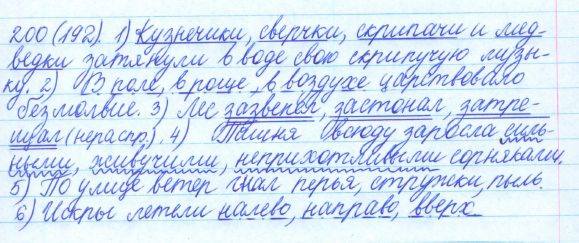 200 (192). 1) Кузнечики, сверчки, скрипачи и мед-
ведки затянули в воде свою скрипучую музы-
ку. 2) В поле, в роще, в воздухе царствовало
безмолвие. 3) Лес зазвенел, застонал, затре-
щал (нераспр.). 4) Пашня всюду заросла силь-
ными, живучими, неприхотливыми сорняками.
5) По улице ветер гнал перья, стружки, пыль.
6) Искры летели налево, направо, вверх.